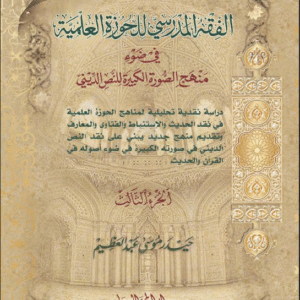 الفقه المدرسي للحوزة العلمية
في ضوء
منهج الصورة الكبيرة للنص الديني
دراسة نقدية تحليلية لمناهج الحوزة العلمية
في نقد الحديث والاستنباط والفتاوى والمعارف
وتقديم منهج جديد يبني على نقد النص
الديني في صورته الكبيرة في ضوء أصوله في
القرآن والحديث
الجزء الثالث
حيدر موسى عبد العظيم